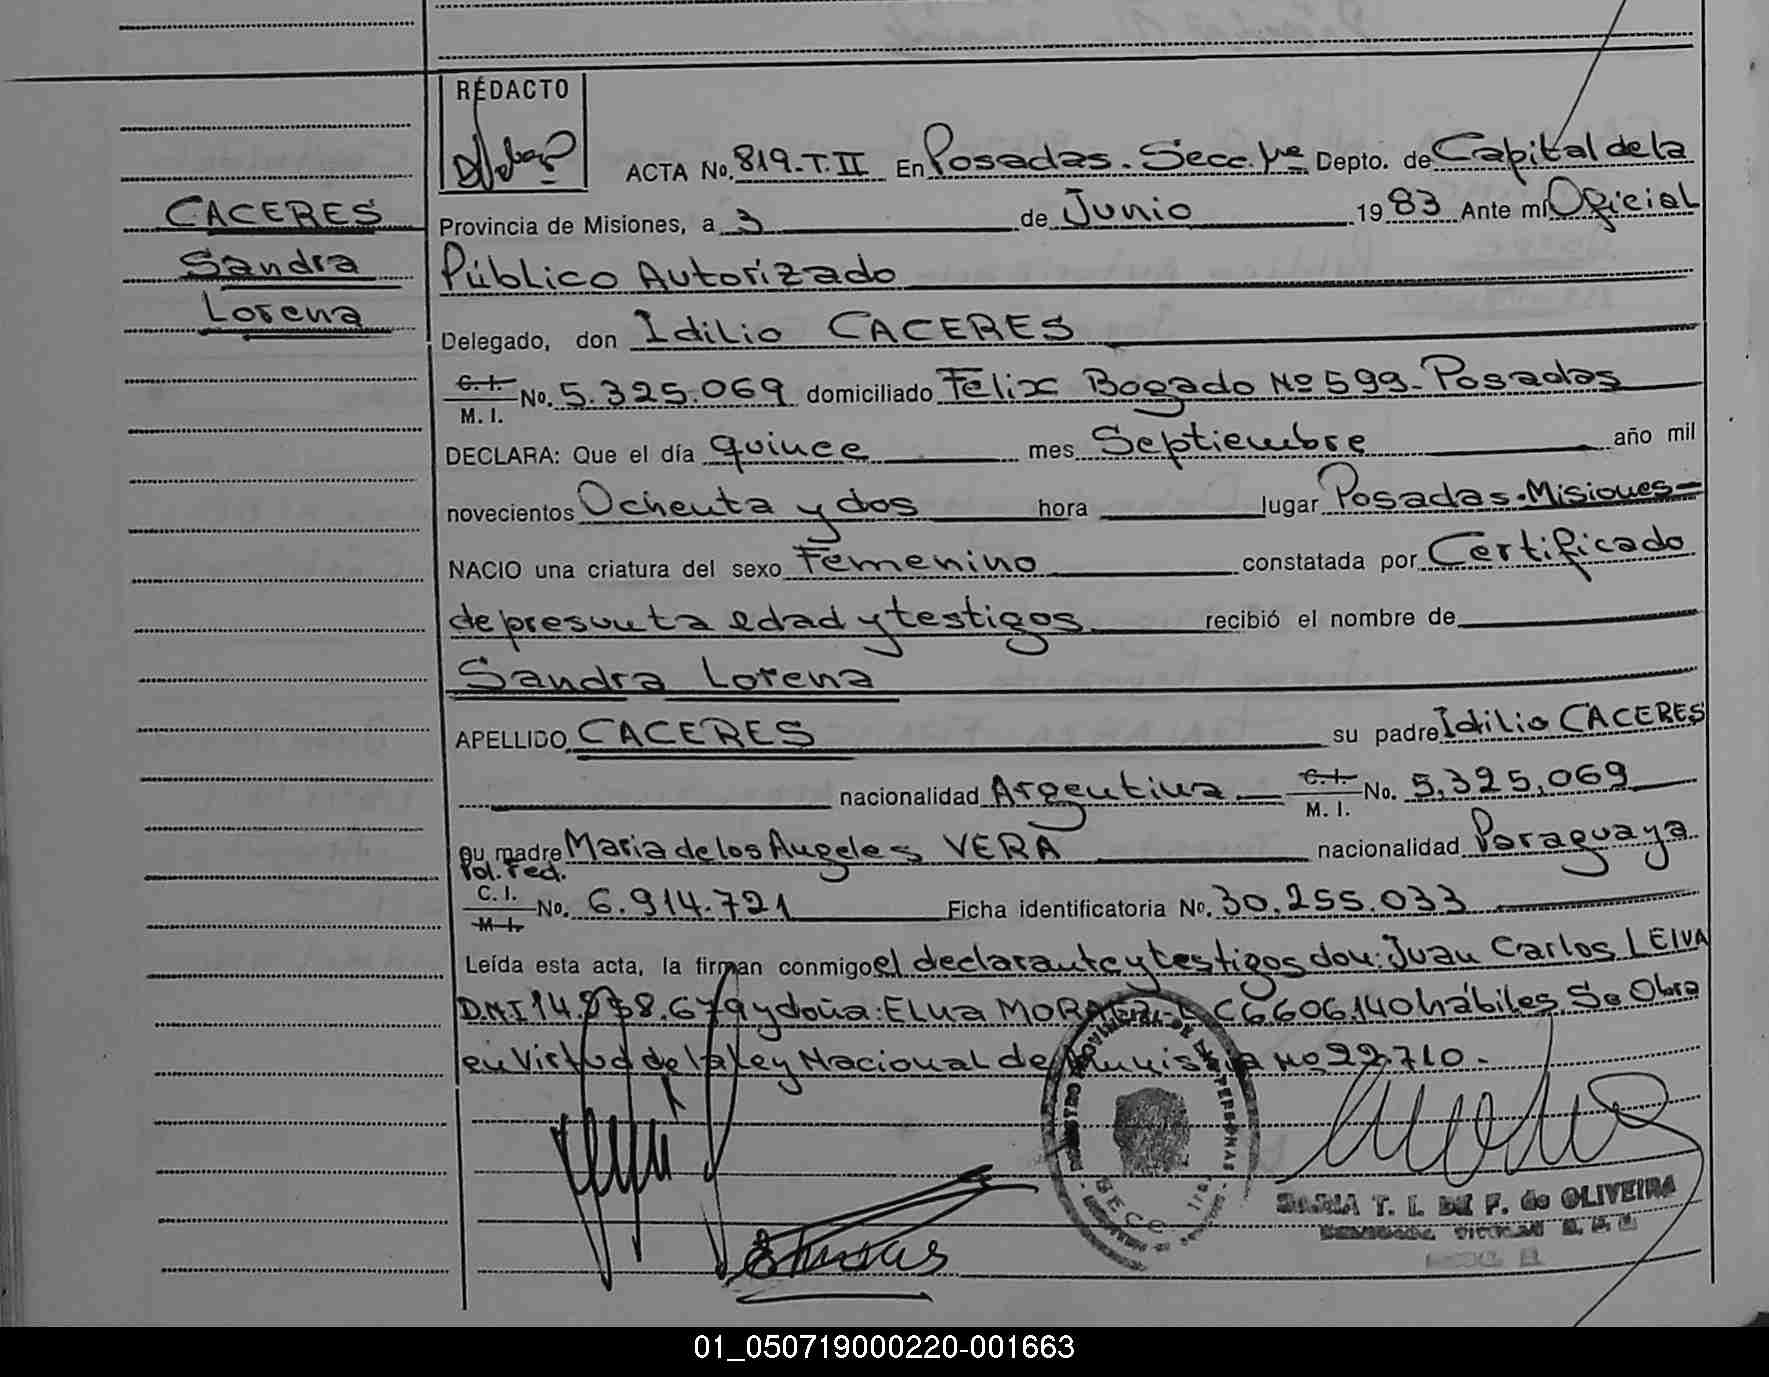 REDACTO
ACTA No. 819-T.II En Posadas. Secc. 1ra Depto. de Capital de la
CACERES
Sandra
Lorena
Provincia de Misiones, a 3 de Junio 1983 Ante mí Oficial
Público Autorizado
Delegado, don Idilio CACERES
C.I.
M.I. No. 5.325.069 domiciliado Félix Bogado Nº 599- Posadas
DECLARA: Que el día quince mes Septiembre año mil
novecientos Ochenta y dos hora lugar Posadas-Misiones-
NACIO una criatura del sexo Femenino constatada por Certificado
de presunta edad y testigos recibió el nombre de
Sandra Lorena
APELLIDO CACERES su padre Idilio CACERES
nacionalidad Argentina C.I. M.I. No. 5.325.069
su madre Maria de los Angeles VERA nacionalidad Paraguaya
Pol. Fed.
C.I. M.I. No. 6.914.721 Ficha identificatoria No. 30.255.033
Leída esta acta, la firman conmigo el declarante y testigos don: Juan Carlos LEIVA
D.N.I 14. y doña: Elva C 6.606.140 hábiles. Se Obra
en Virtud de la Ley Nacional de Amnistia Nº 22.710.-
SECC. 1ra.
MARIA T. I. DE F. de OLIVEIRA
01_050719000220-001663